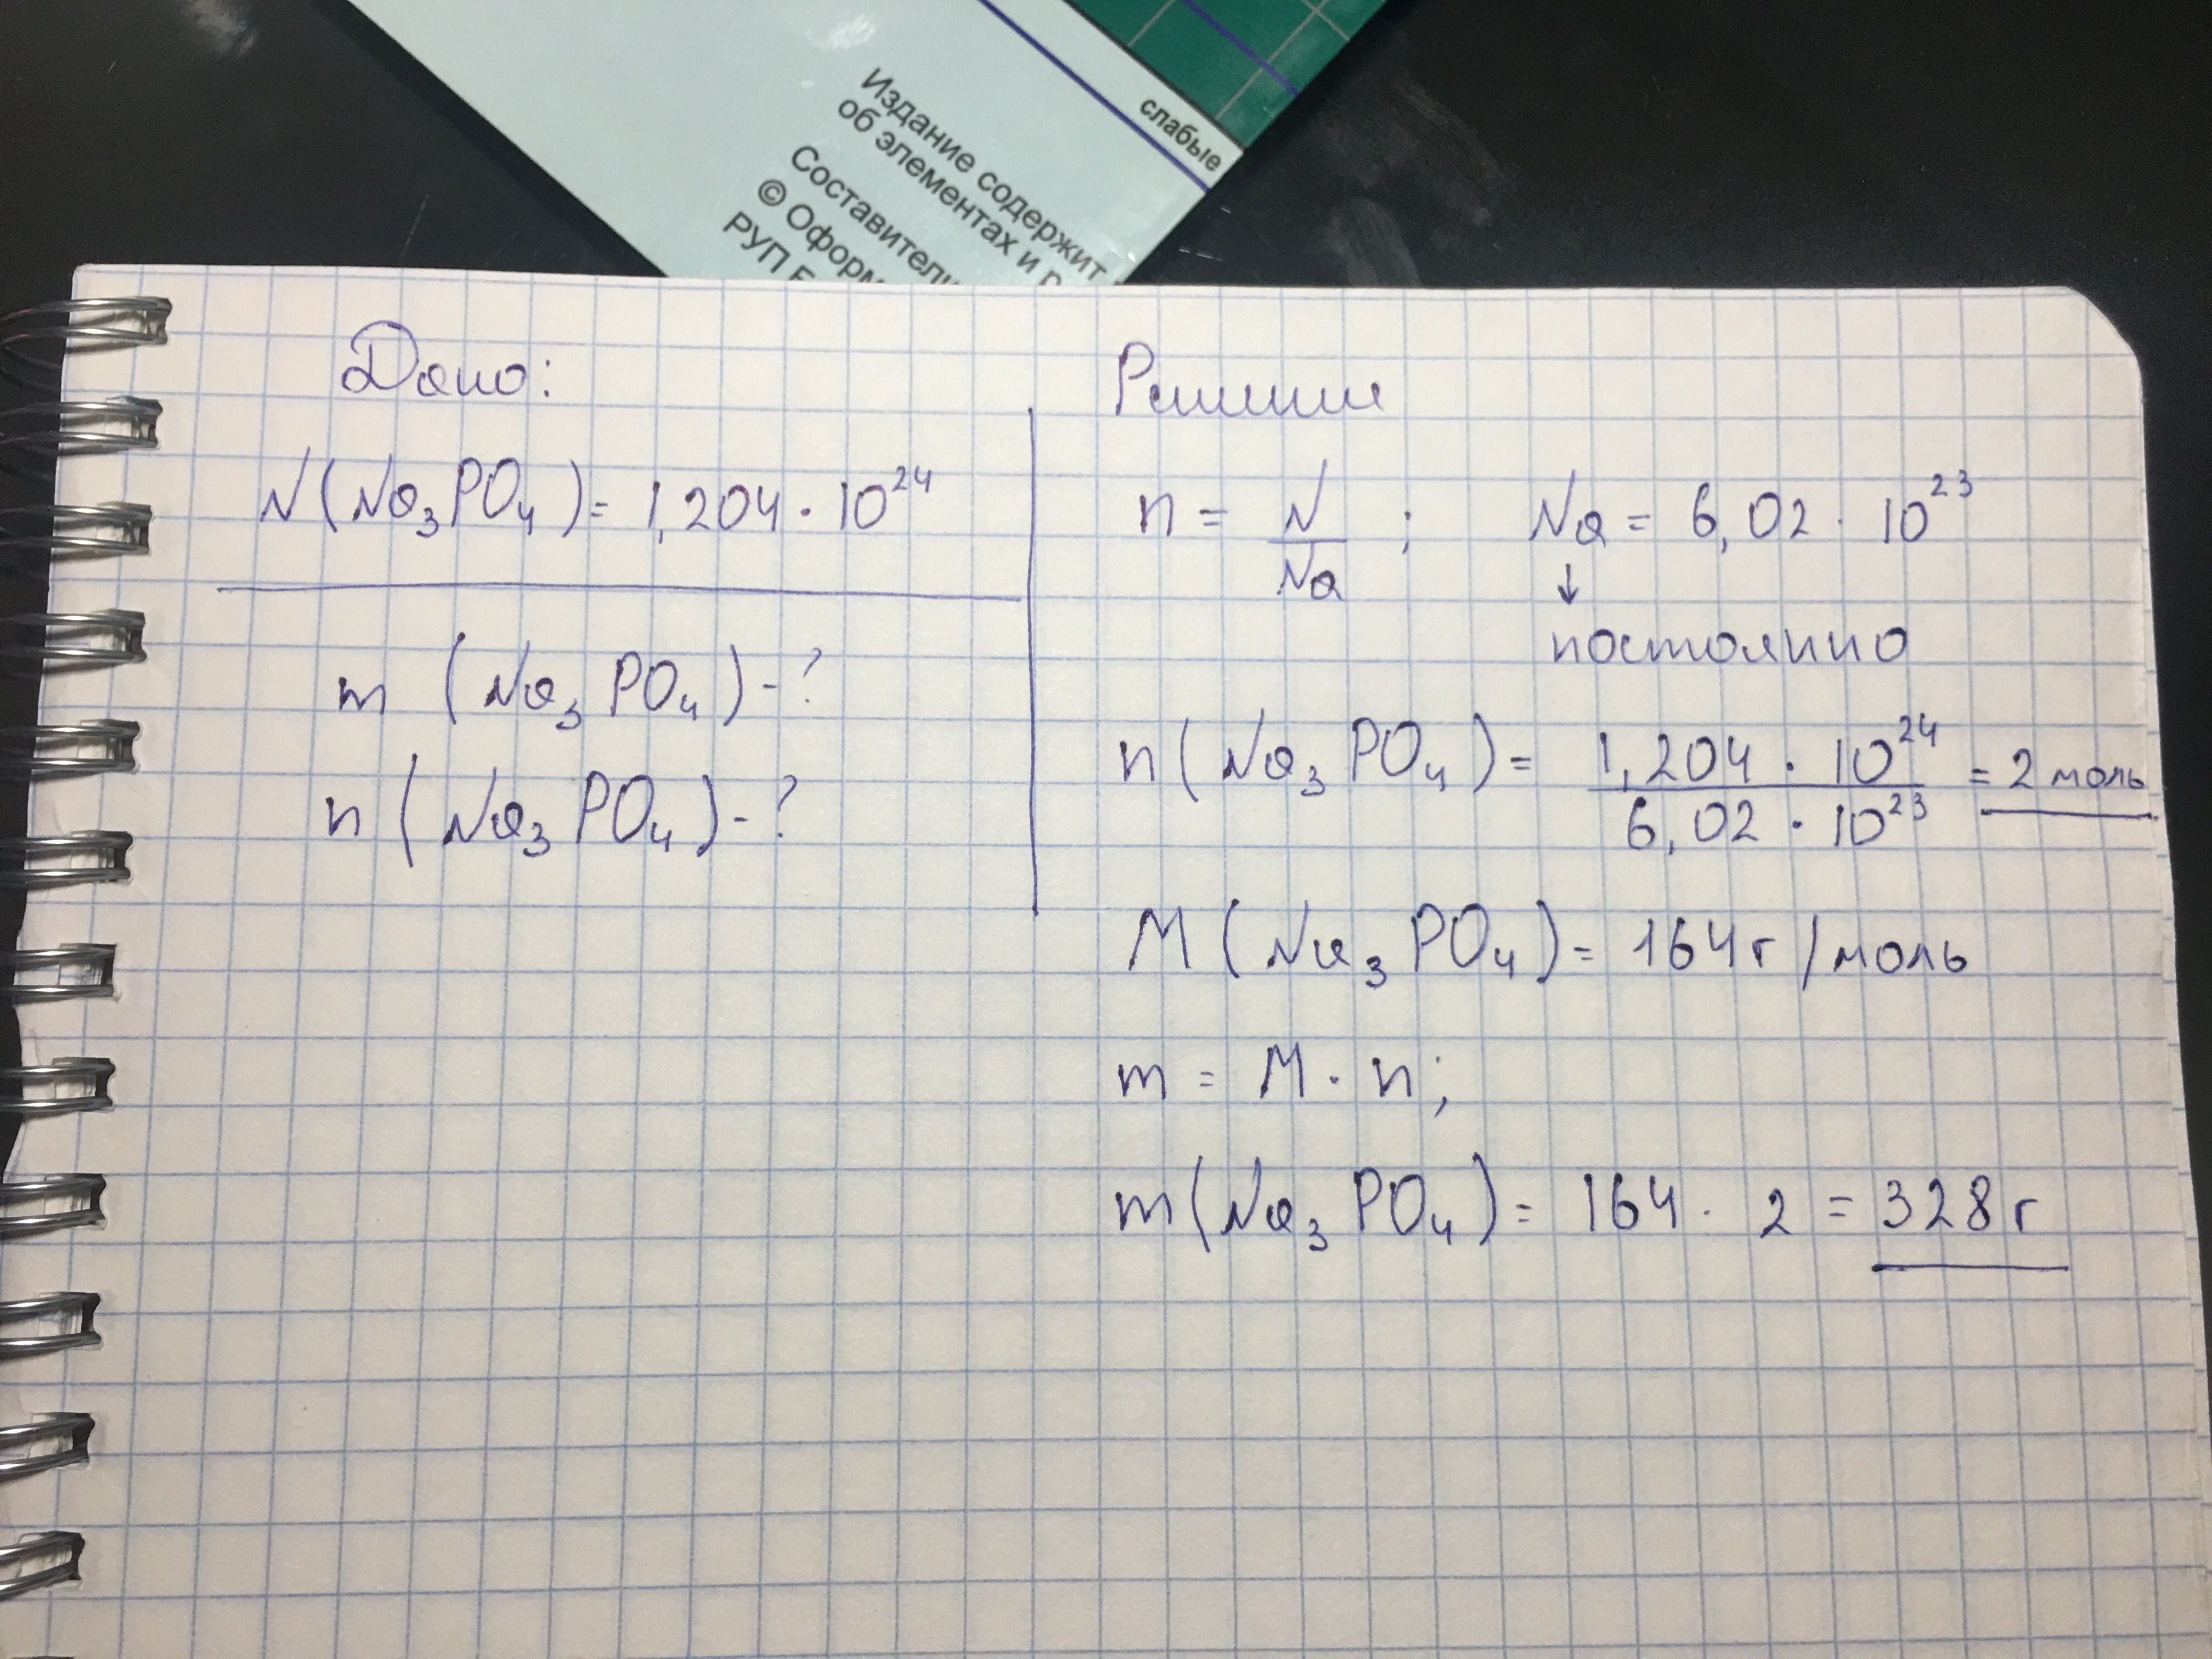 слабые
Издание содержит
об элементах и р
Составители
© Оформ
РУП Б
Дано:
N(Na₃PO₄) = 1,204 · 10²⁴
m (Na₃PO₄) - ?
n (Na₃PO₄) - ?
Решение
n = N / Na ; Na = 6,02 · 10²³
↓
постоянно
n(Na₃PO₄) = 1,204 · 10²⁴ / 6,02 · 10²³ = 2 моль
M(Na₃PO₄) = 164 г/моль
m = M · n;
m(Na₃PO₄) = 164 · 2 = 328 г